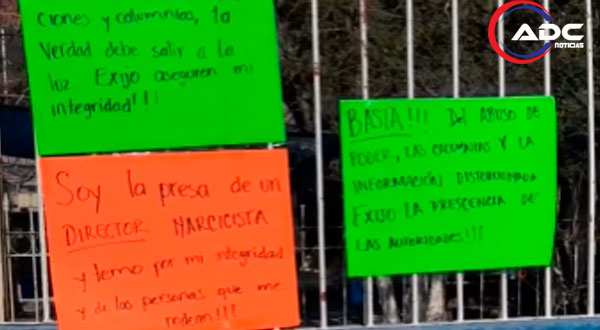 ciones y columnias, la
verdad debe salir a la
luz Exijo aseguren mi
integridad!!!
Soy la presa de un
DIRECTOR NARCICISTA
y temo por mi integridad
y de las personas que me
rodean!!!
BASTA!!! Del ABUSO DE
PODER, LAS CALUMNIAS Y LA
INFORMACIÓN DISTORCIONADA
EXIJO LA PRESCENCIA DE
LAS AUTORIDADES!!!
ADC
NOTICIAS